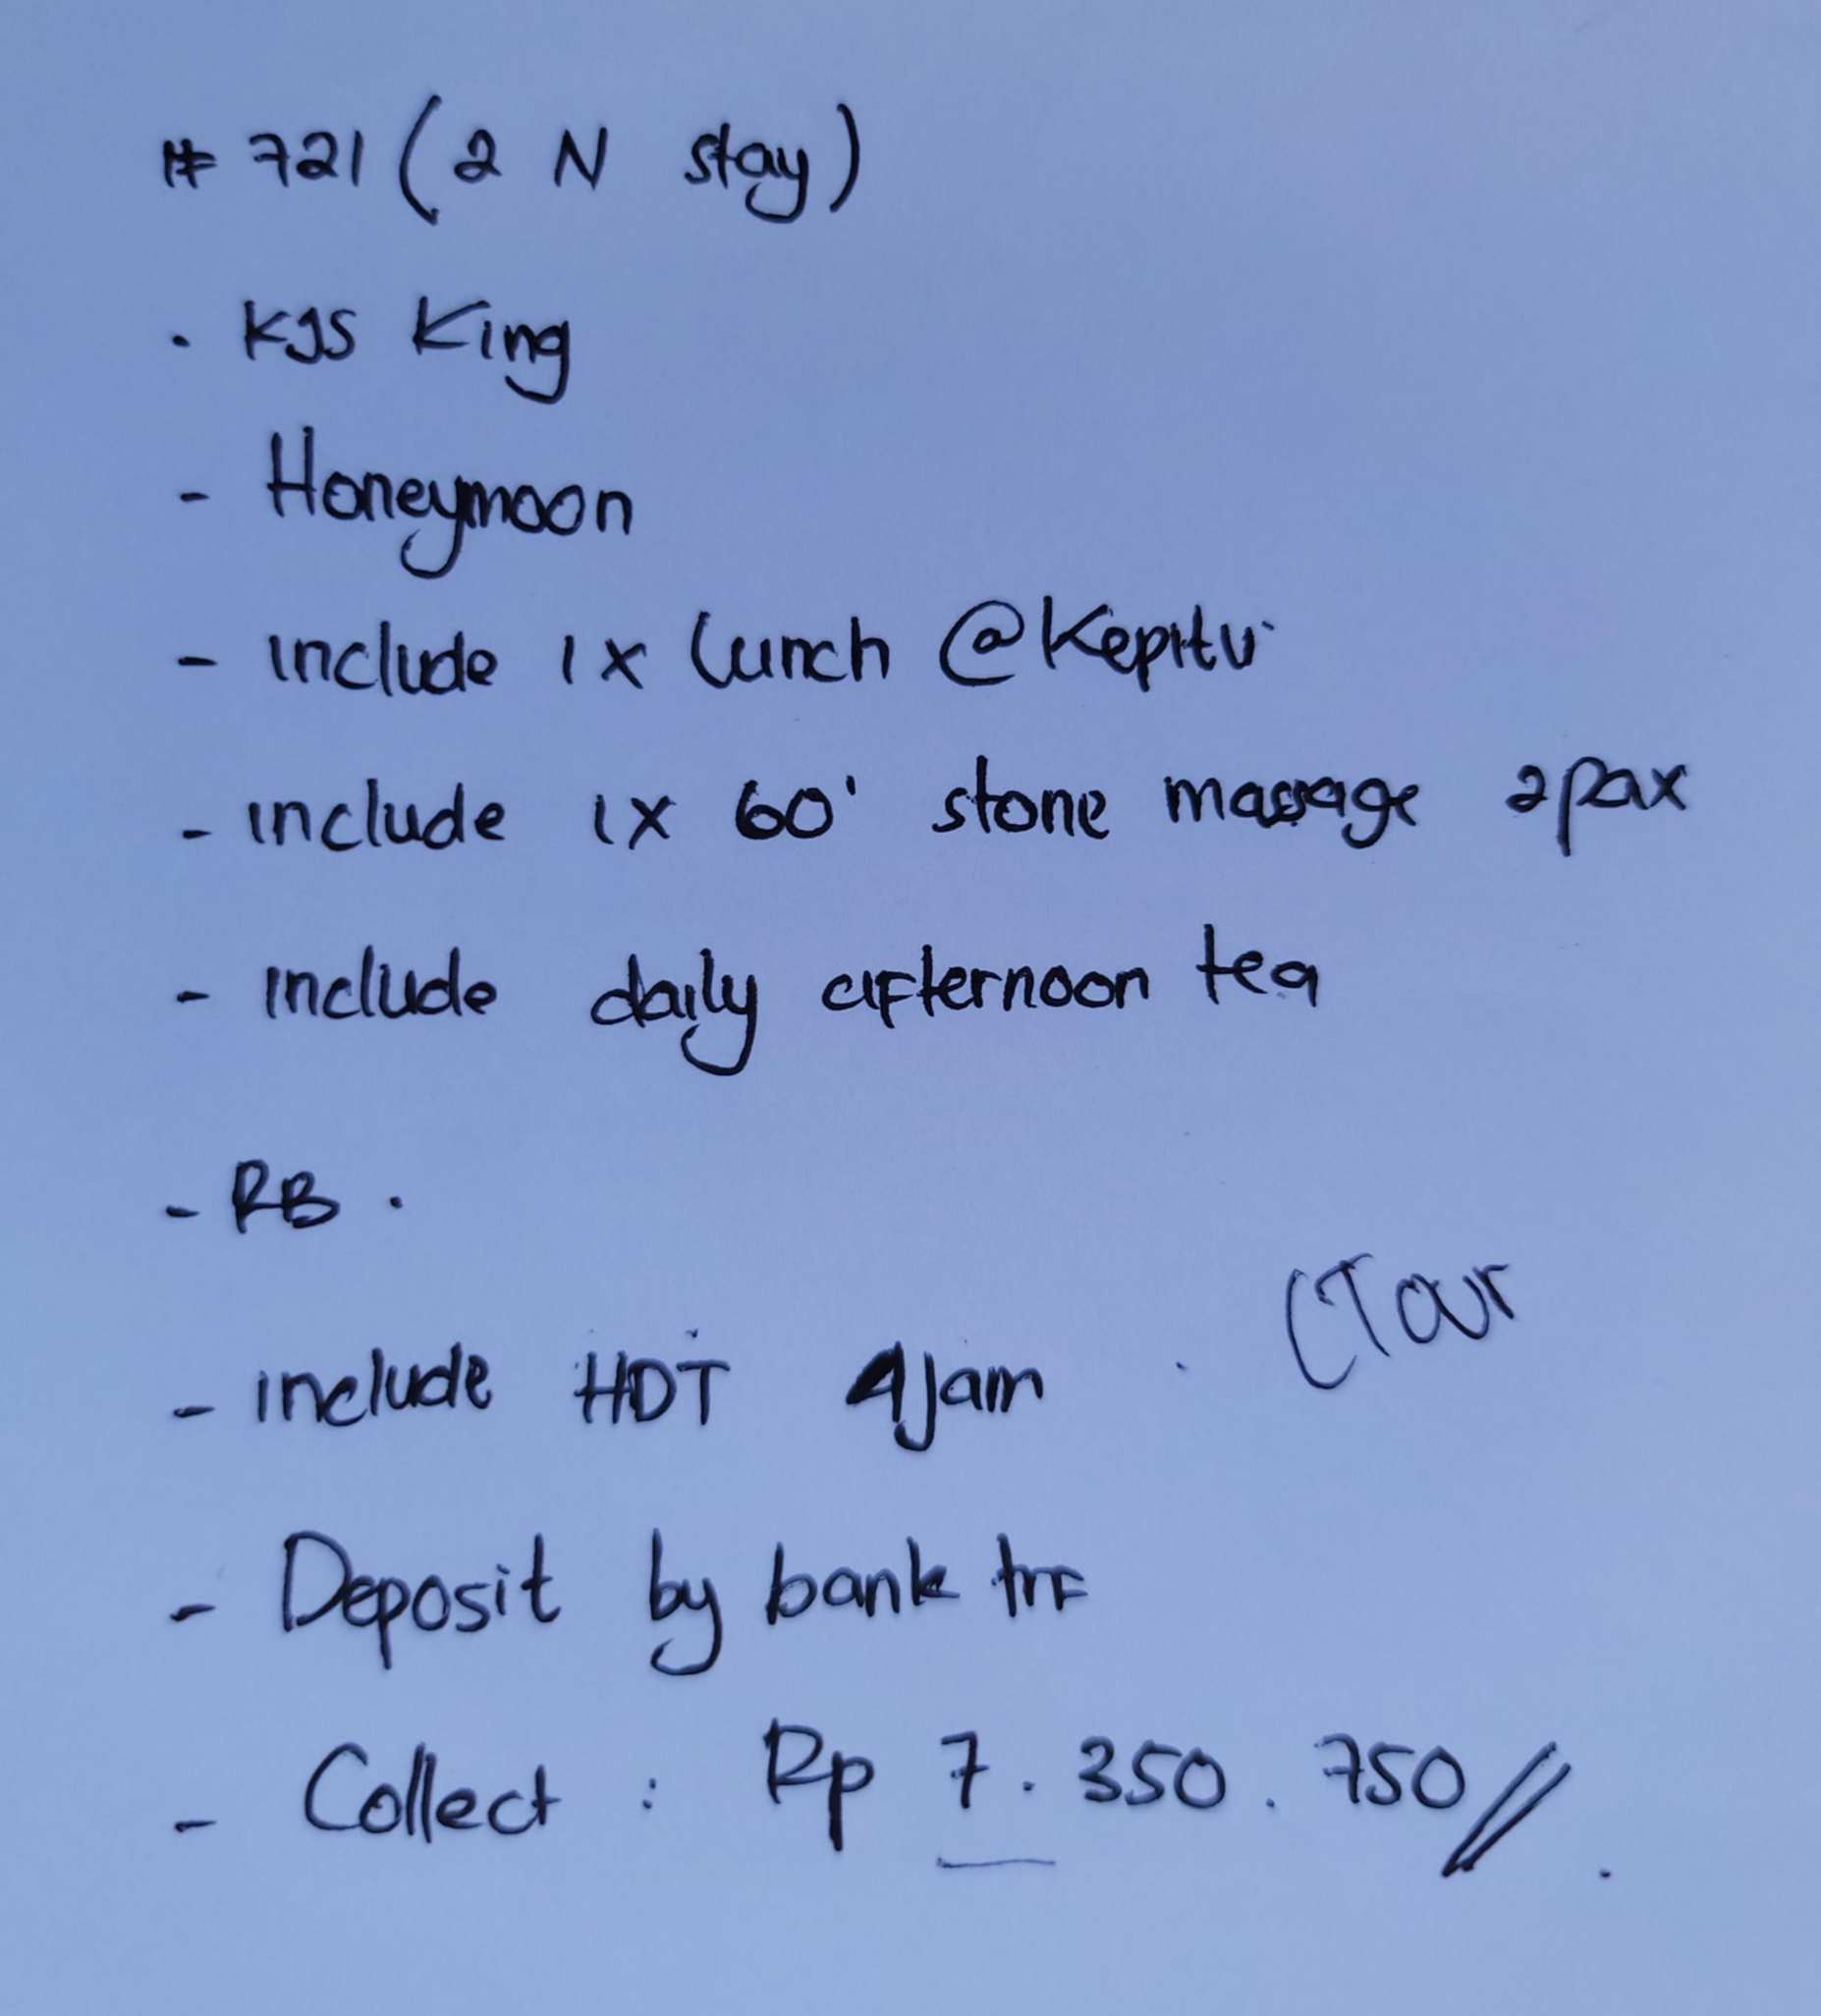 # 721 (2 N stay)
. KJS King
- Honeymoon
- include 1x lunch @Kepitu
- include 1x 60' stone massage 2pax
- include daily afternoon tea
- RB .
(Tour
- include HDT 4jam
- Deposit by bank trf
- Collect : Rp 7.350.750//.